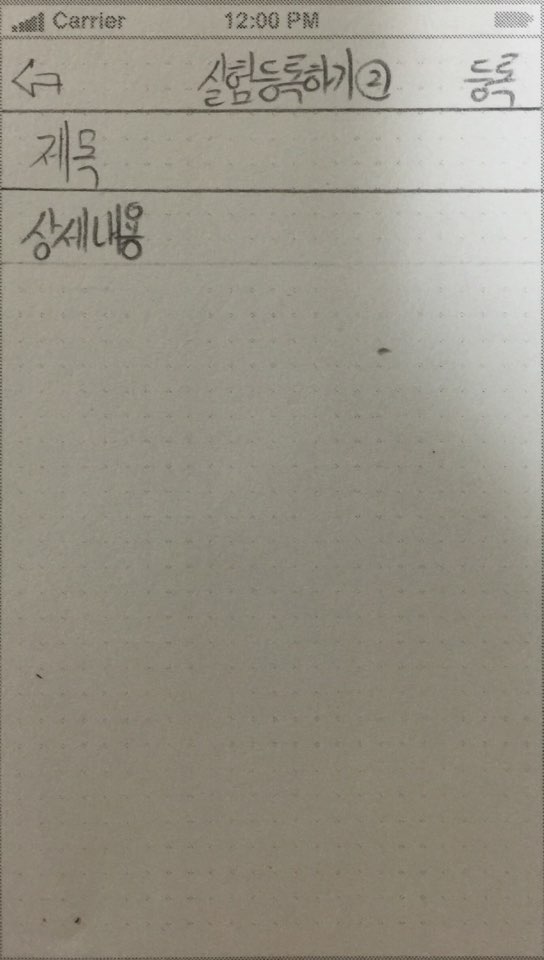 Carrier 12:00 PM
실험등록하기② 등록
제목
상세내용